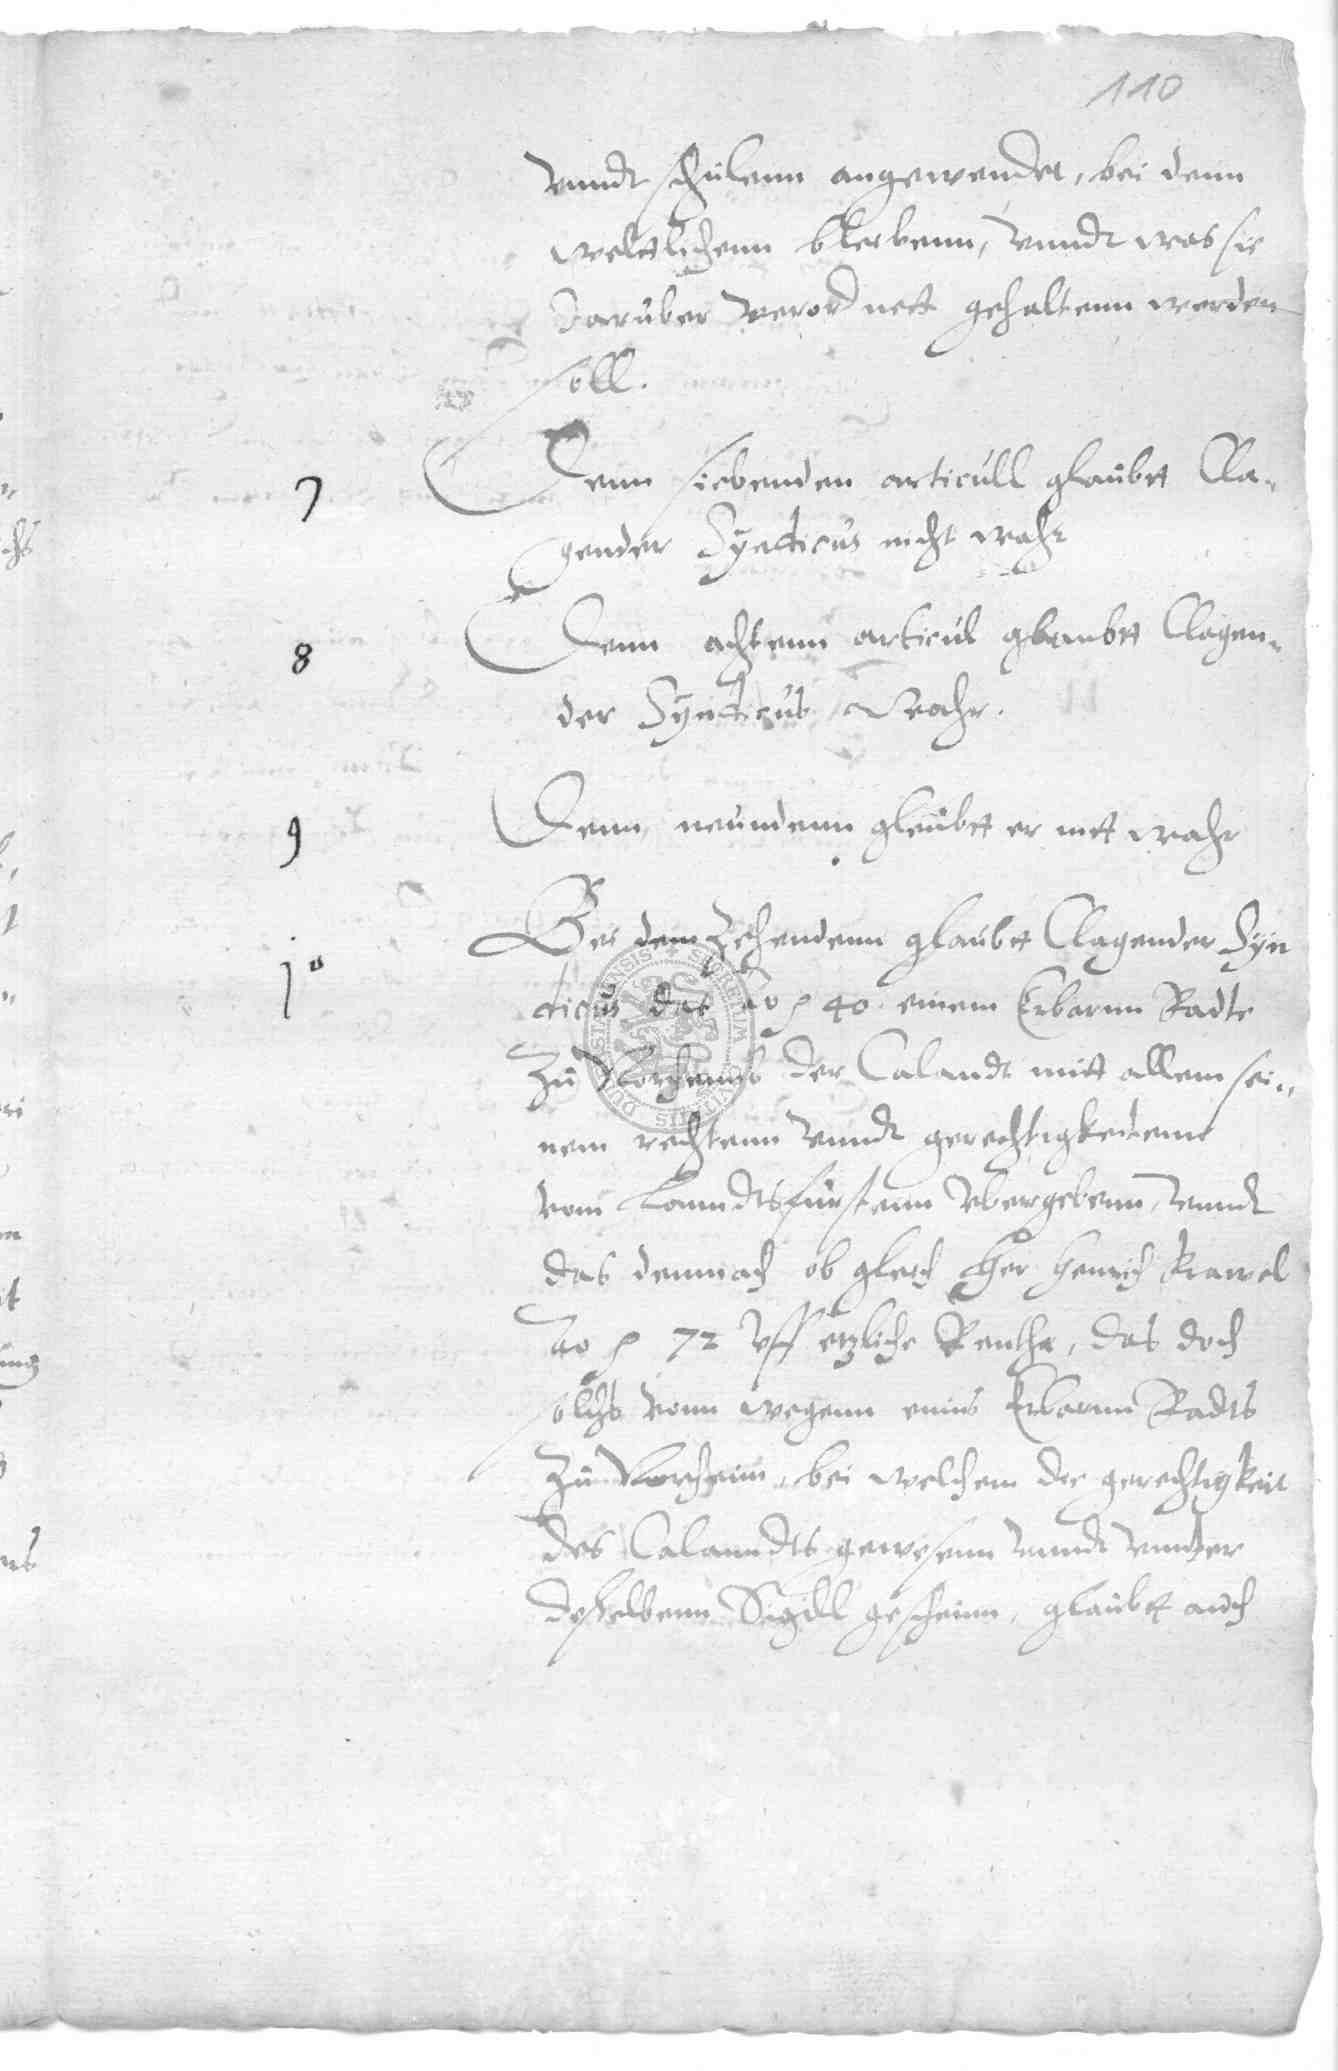 110
vnndt schulenn angewendet, bei denn
weltlichenn bleibenn, vnndt was sie
darüber verordnett gehaltenn werden
soll.
7 Denn siebenden articull glaubtt Cla-
gender Syndicus nicht wahr
8 Denn achtenn articul glaubtt Clagen-
der Syndicus Wahr.
9 Denn neundenn glaubtt er nitt wahr
10 Bei dem Zehendenn glaubtt Clagender Syn
dicus das Ao p 40 einem Erbarnn Radte
zu Northeimb der Calandt mitt allem sei-
nem rechtenn vnndt gerechtigkeitenn
vom Lanndtsfürstenn Vbergebenn, vnndt
das dennach ob gleich Her Henrich Krawel
Ao p 72 Vff etzliche Renthe, das doch
solchs vonn wegenn eines Erbarnn Radts
zu Northeim, bei welchem die gerechtigkeit
des Calanndts gewesenn vnndt vnnder
desselbenn Sigill gescheinn, glaubtt auch